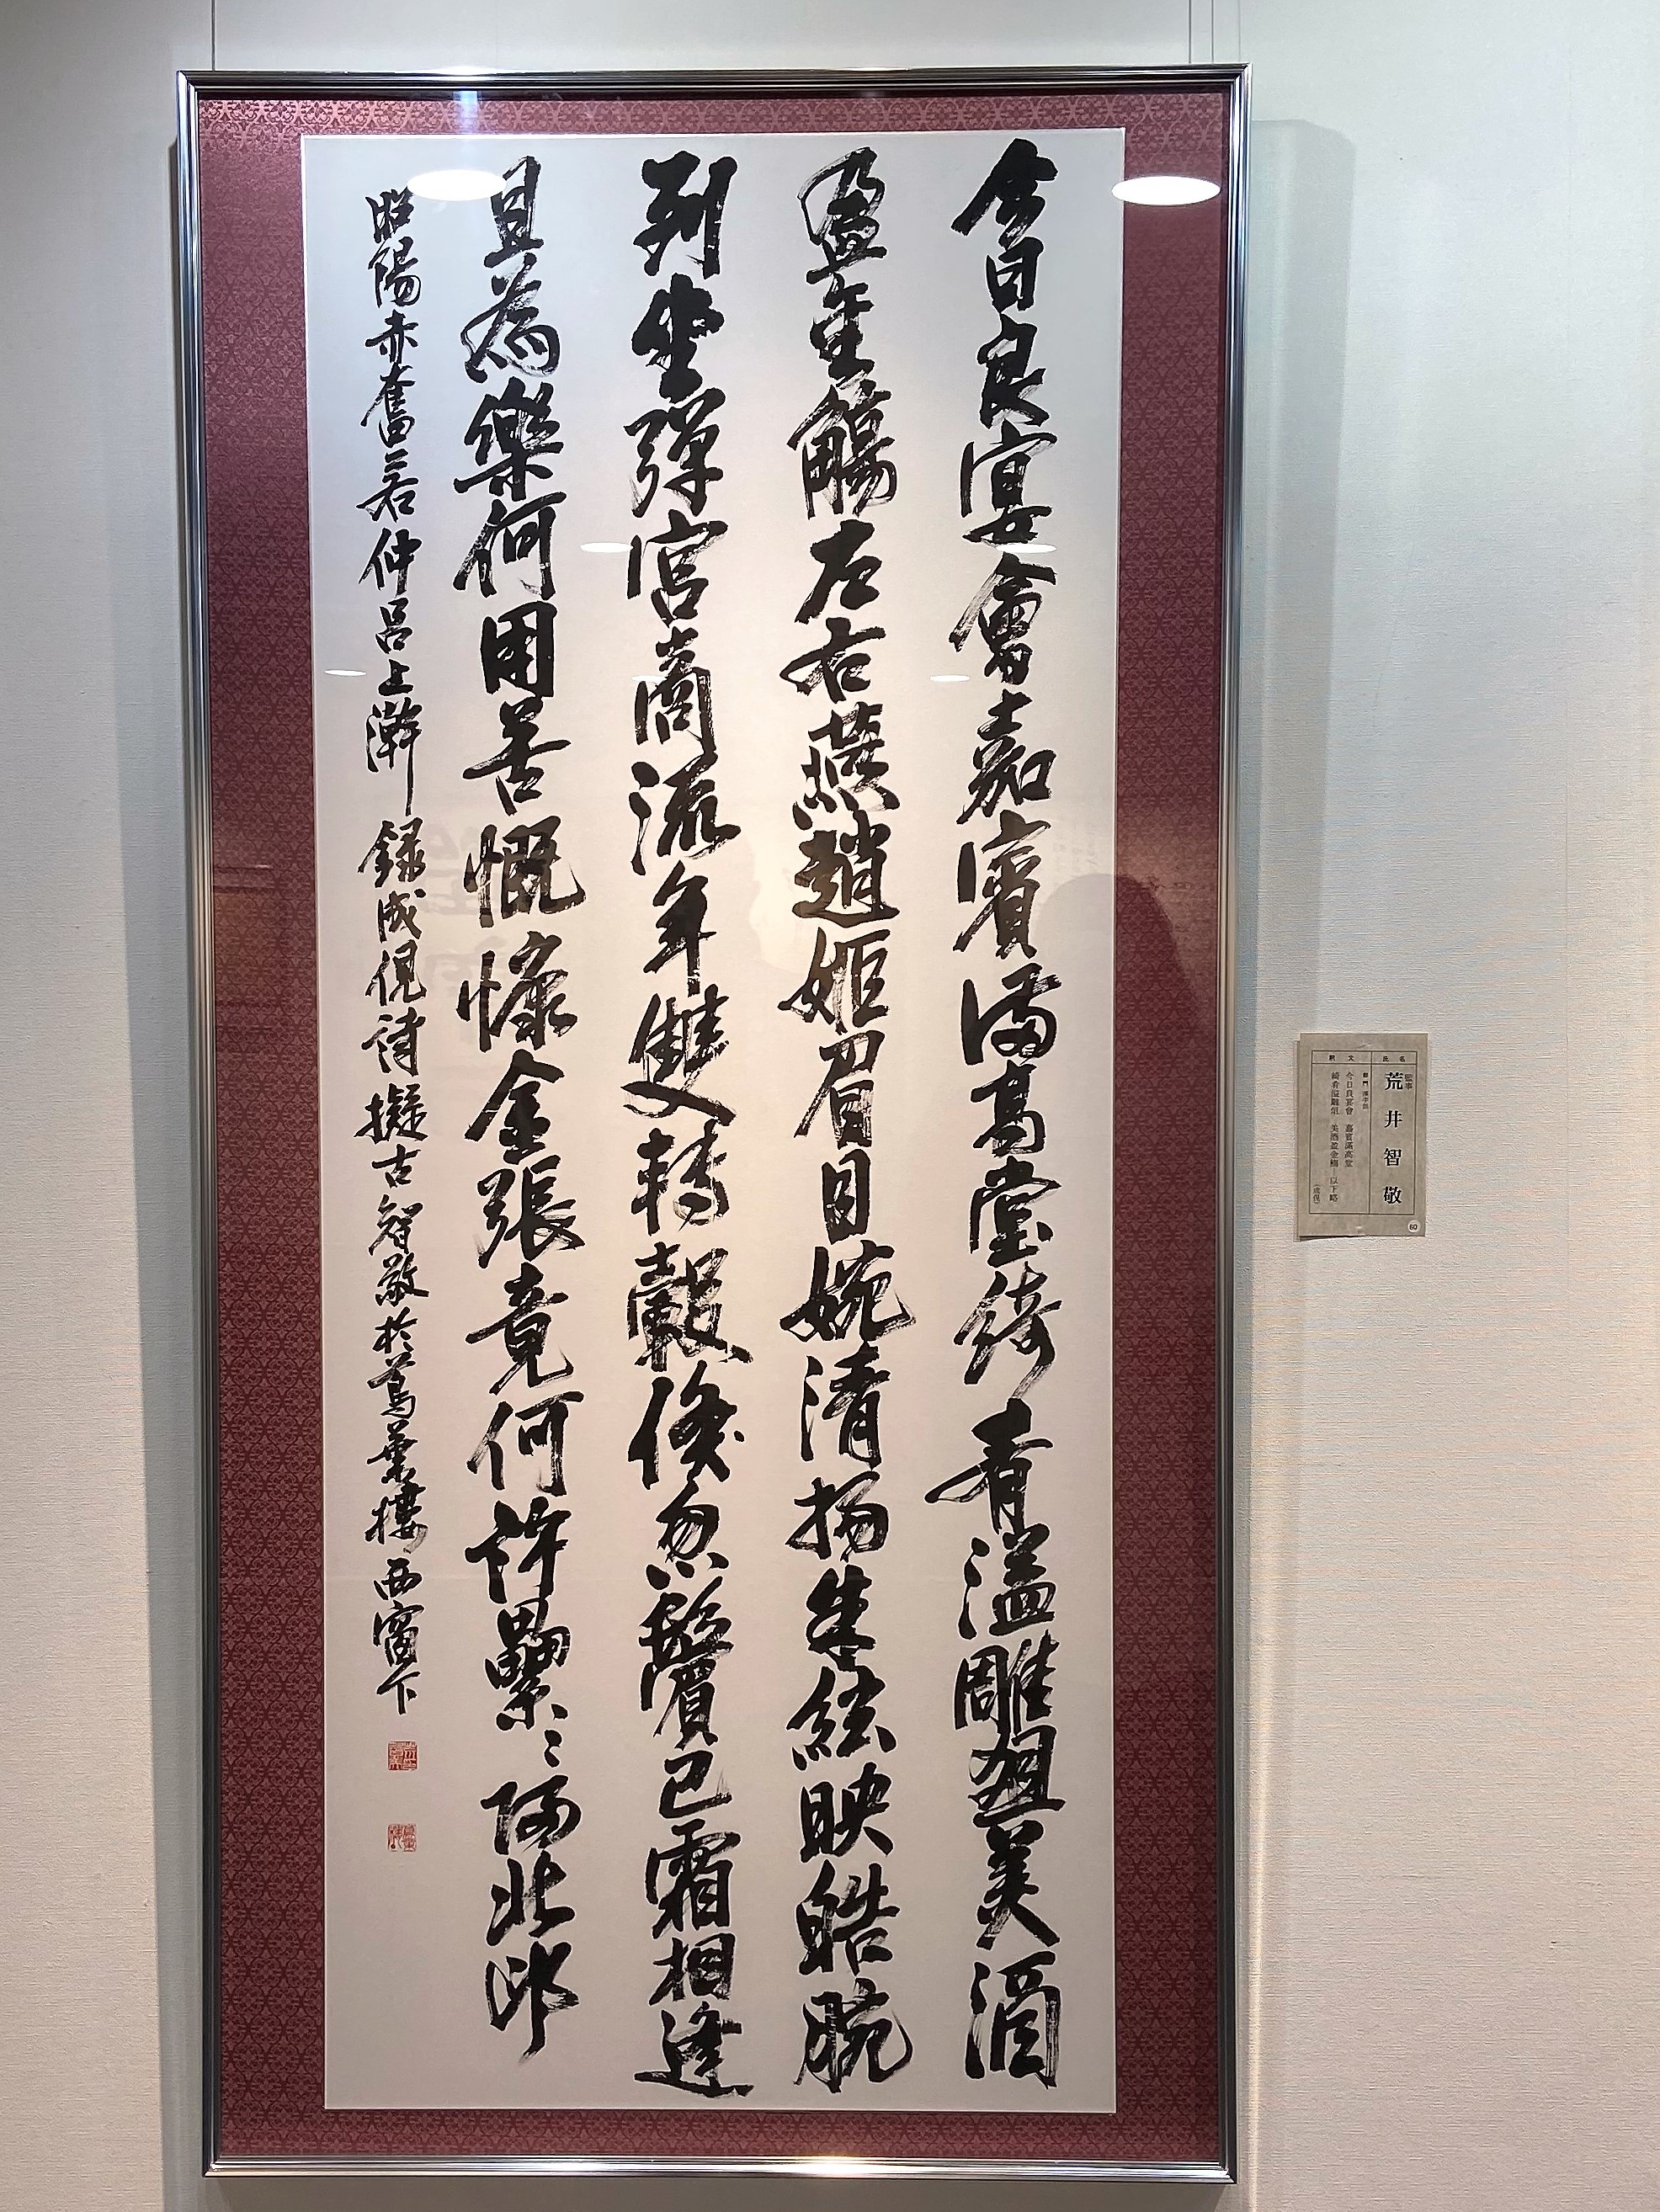 今日良宴會嘉賓滿高堂綺肴溢雕俎美酒
盈金觴左右燕趙姬眉目婉清揚朱絃映皓腕
列坐彈宮商流年雙轉轂倏忽鬢已霜相逢
且為樂何用苦慨慷金張竟何許纍〻北邙
昭陽赤奮若仲呂上澣錄成俔詩擬古智敬於蔦葉樓西窗下
氏名
監事
荒井智敬
部門 漢字部
釈文
今日良宴會 嘉賓滿高堂
綺肴溢雕俎 美酒盈金觴 以下略
(成俔)
60